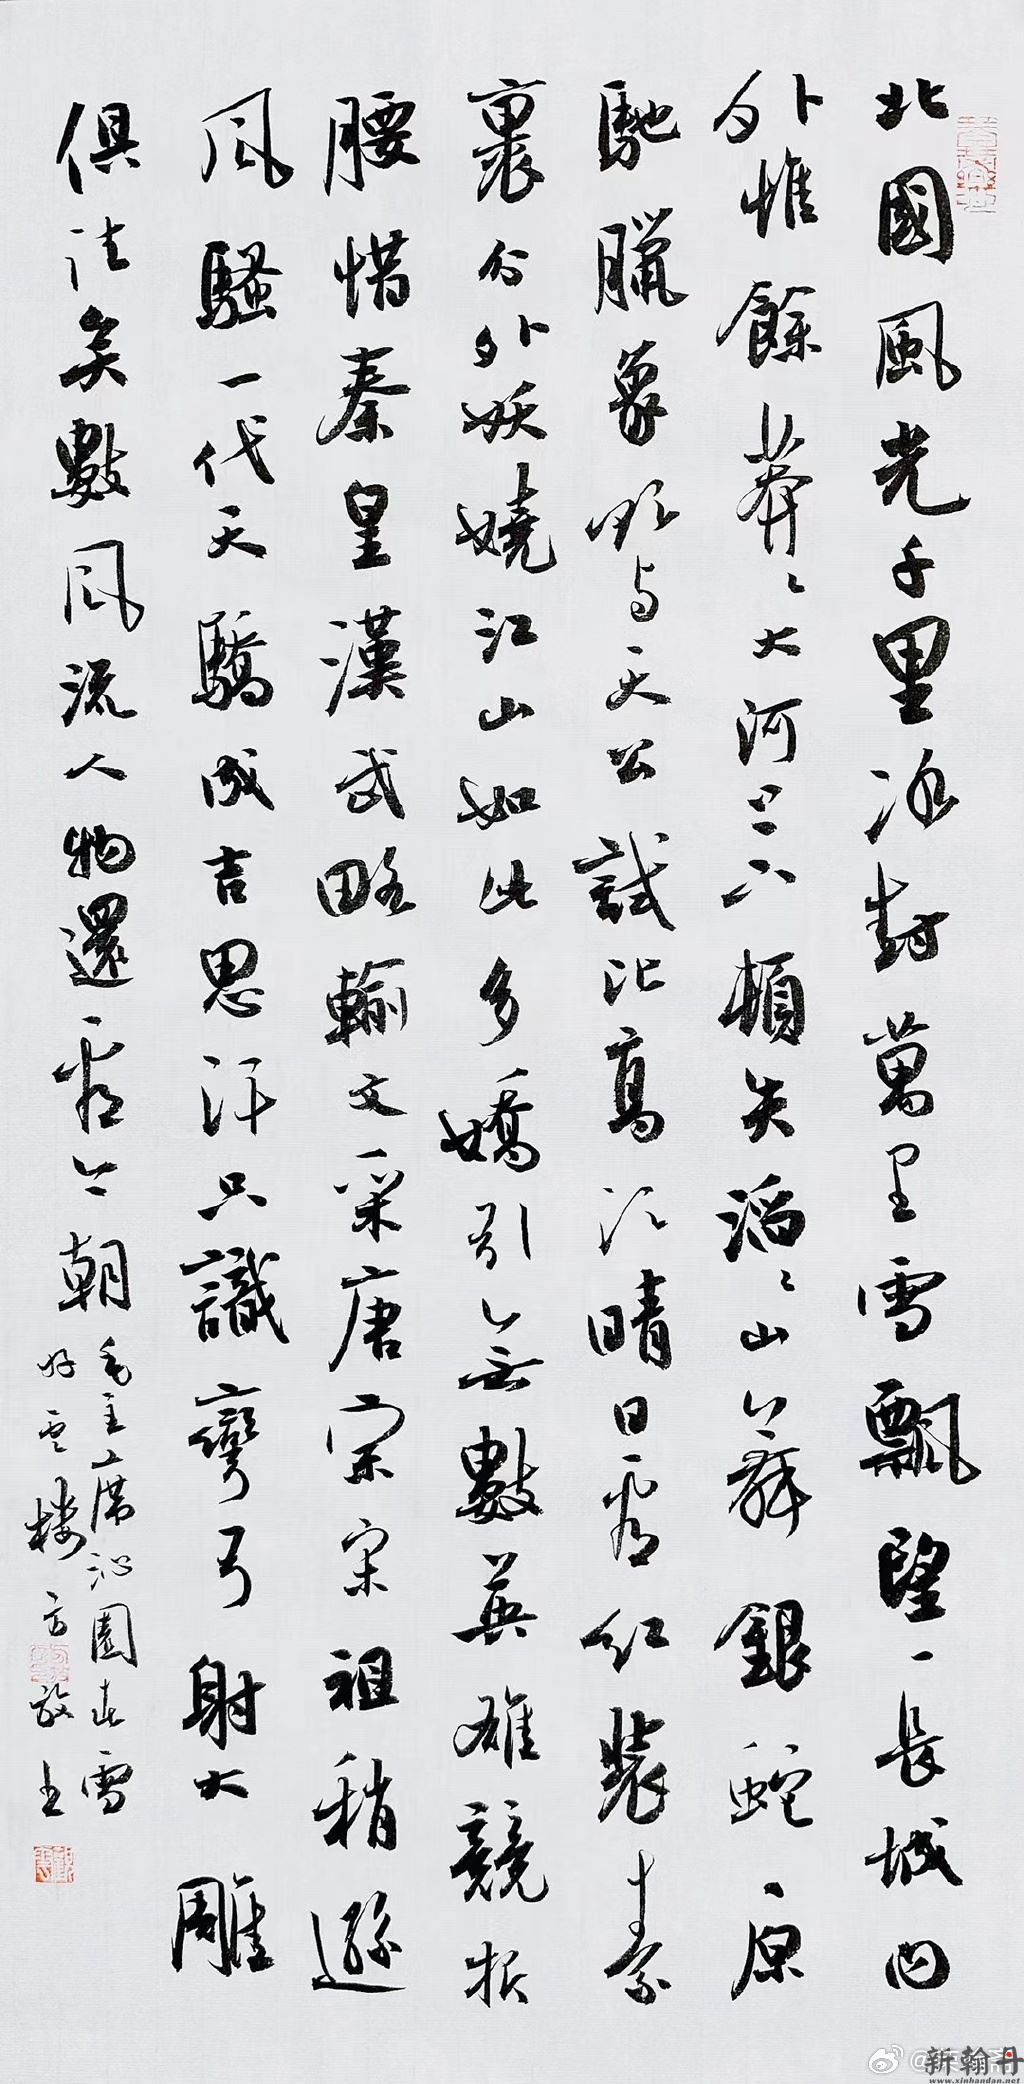 北國風光千里冰封萬里雪飄望長城内
外惟餘莽〻大河上下頓失滔〻山舞銀蛇原
馳臘象欲与天公試比高須晴日看红裝素
裹分外妖嬈江山如此多嬌引無數英雄競折
腰惜秦皇漢武略輸文采唐宗宋祖稍遜
风騷一代天驕成吉思汗只識彎弓射大雕
俱往矣數风流人物還看今朝
毛主席沁園春雪
好雲楼方放
新翰丹
www.xinhandan.net